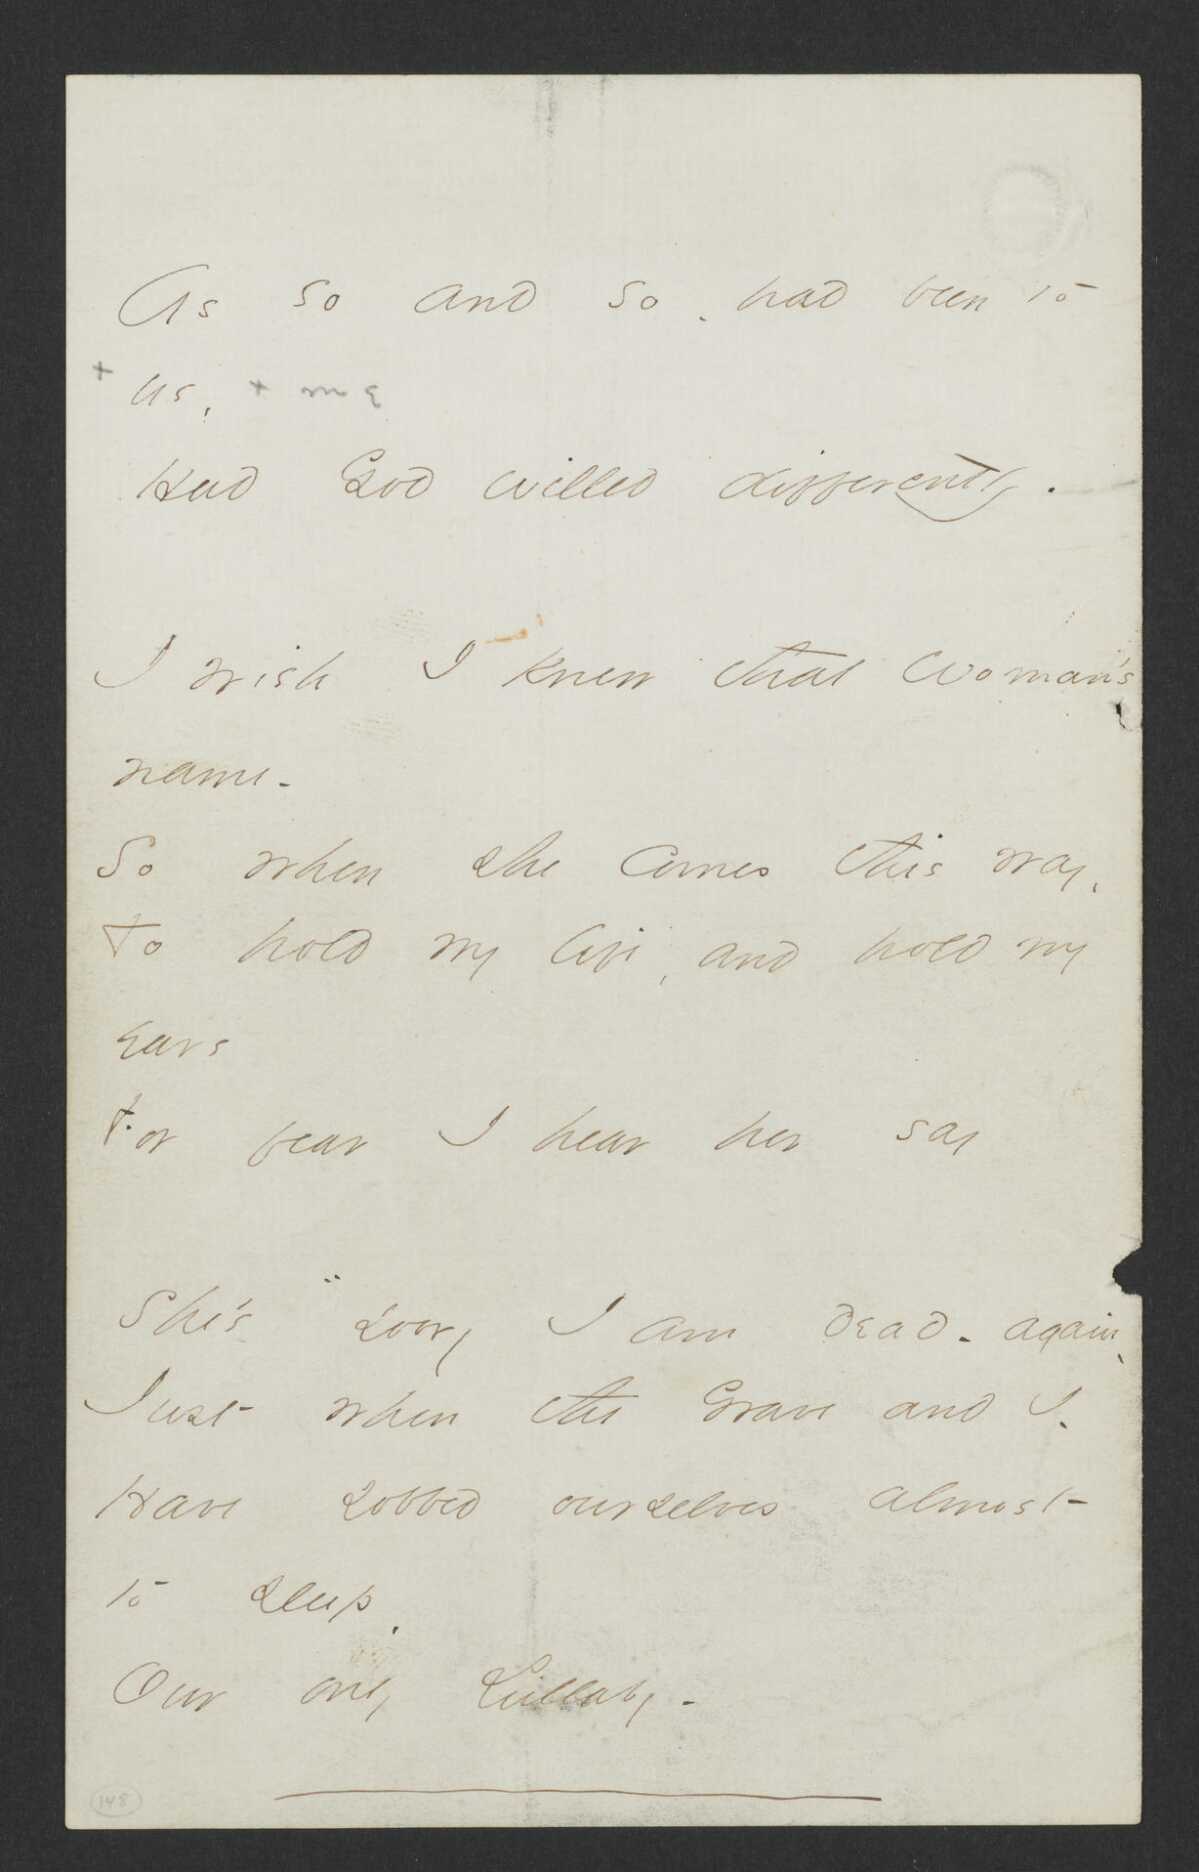 As so and so - had been to
+ us, + me
Had God willed differently.
I wish I knew that Woman's
name -
So when she comes this way,
To hold my life, and hold my
ears
For fear I hear her say
She's "sorry I am dead - again -
Just when the Grave and I -
Have sobbed ourselves almost
to sleep,
Our only Lullaby -
148